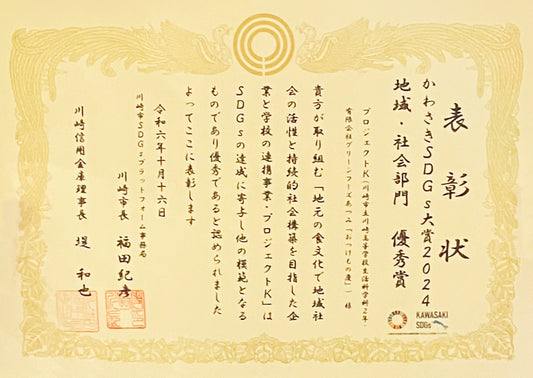 表彰状
かわさきSDGs大賞2024
地域・社会部門 優秀賞
KAWASAKI
SDGs
プロジェクトK(川崎市立川崎高等学校生活科学科2年・
有限会社グリーンフーズあつみ「おつけもの慶」) 様
貴方が取り組む「地元の食文化で地域社
会の活性と持続的社会構築を目指した企
業と学校の連携事業・プロジェクトK」は
SDGsの達成に寄与し他の模範となる
ものであり優秀であると認められました
よってここに表彰します
令和六年十月十六日
川崎市SDGsプラットフォーム事務局
川崎市長 福田紀彦
川崎信用金庫理事長 堤 和也